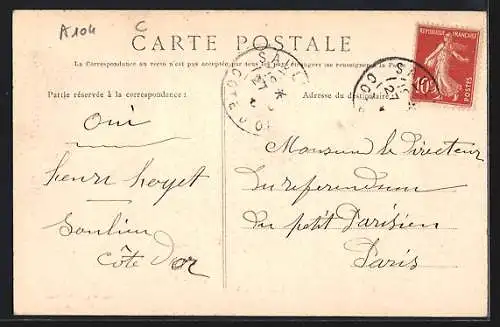 A104 C
CARTE POSTALE
La Correspondance au recto n'est pas acceptée par tous les pays étrangers (se renseigner à la Poste)
Partie réservée à la correspondance :
Adresse du destinataire
REPUBLIQUE FRANÇAISE
10c
POSTES
COTE D'OR
27
27
oui
henri hoyet
Saulieu
Côte d'or
Monsieur le Directeur
du referendum
du petit Parisien
Paris